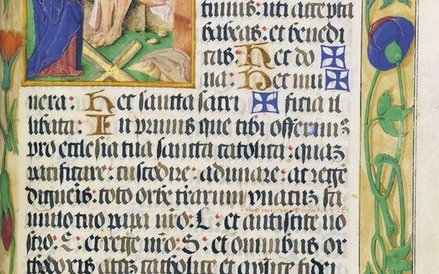 timus: uti accepta
habeas: et benedi
cas: Hec do
na: Hec mu
nera: Hec sancta sacri ficia il
libata: In primis que tibi offerimus
pro ecclesia tua sancta catolica: quam
pacificare: custodire: adunare: at regere
digneris: toto orbe terrarum una cum fa
mulo tuo papa nro: et antistite no
stro: et rege nro: et omnibus or
thodoxis atque catholice et aplice fidei